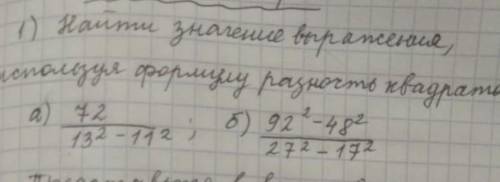 1) Найти значение выражения,
используя формулу разность квадрато
а) 72 / 13² - 11² ; б) 92² - 48² / 27² - 17²